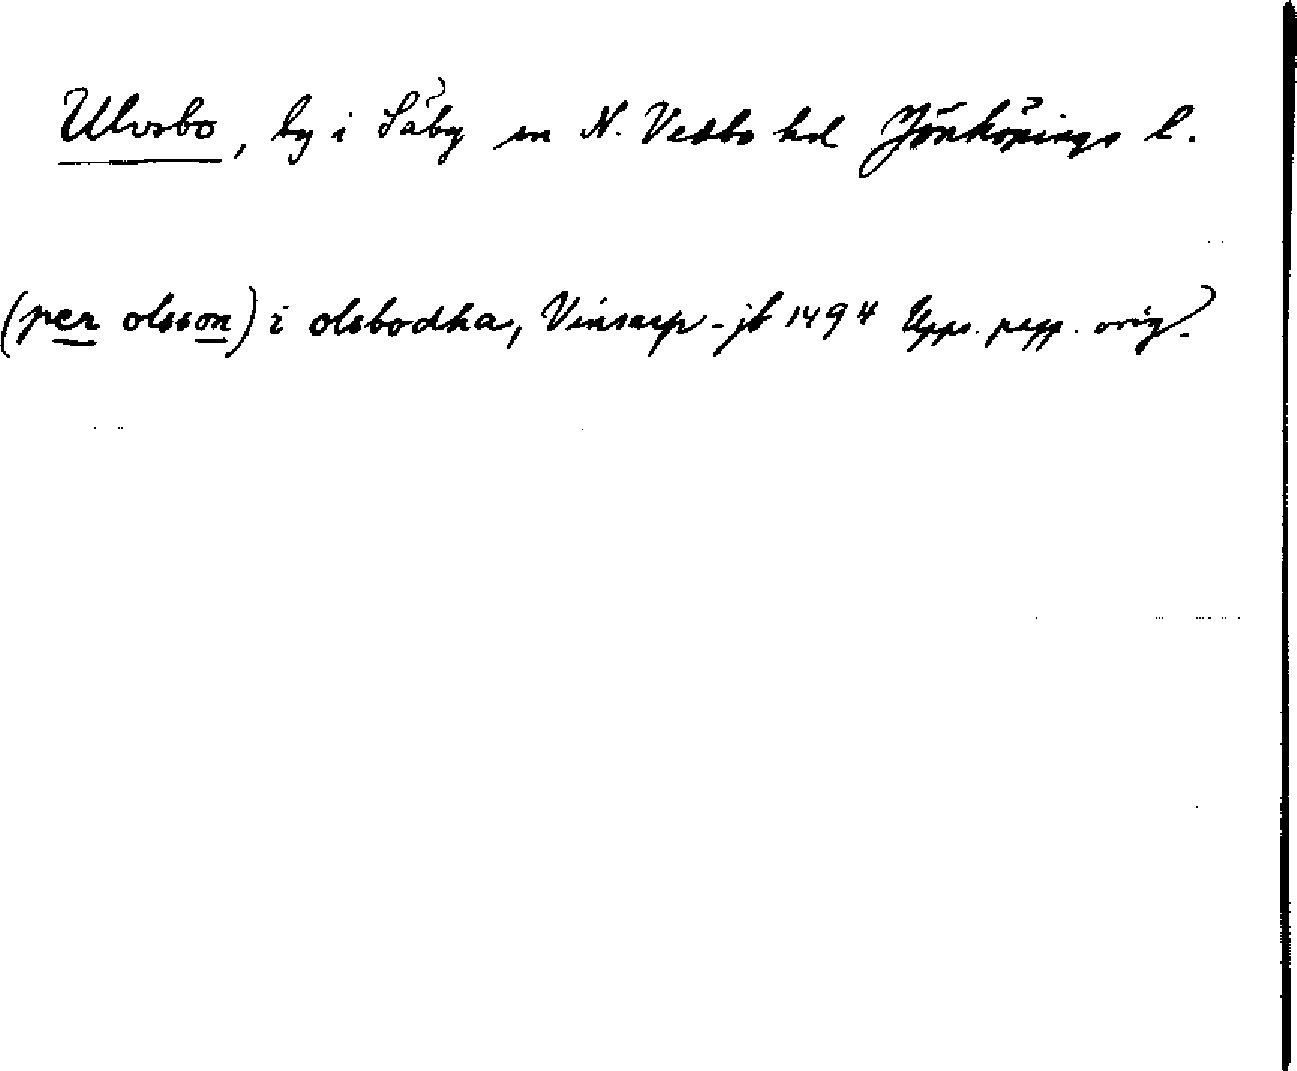 Ulvsbo, by i Säby sn N. Vedbo hd Jönköpings l.
(per olsson) i olsbodha, Vinsarp-jb 1494 Upps. papp. orig.